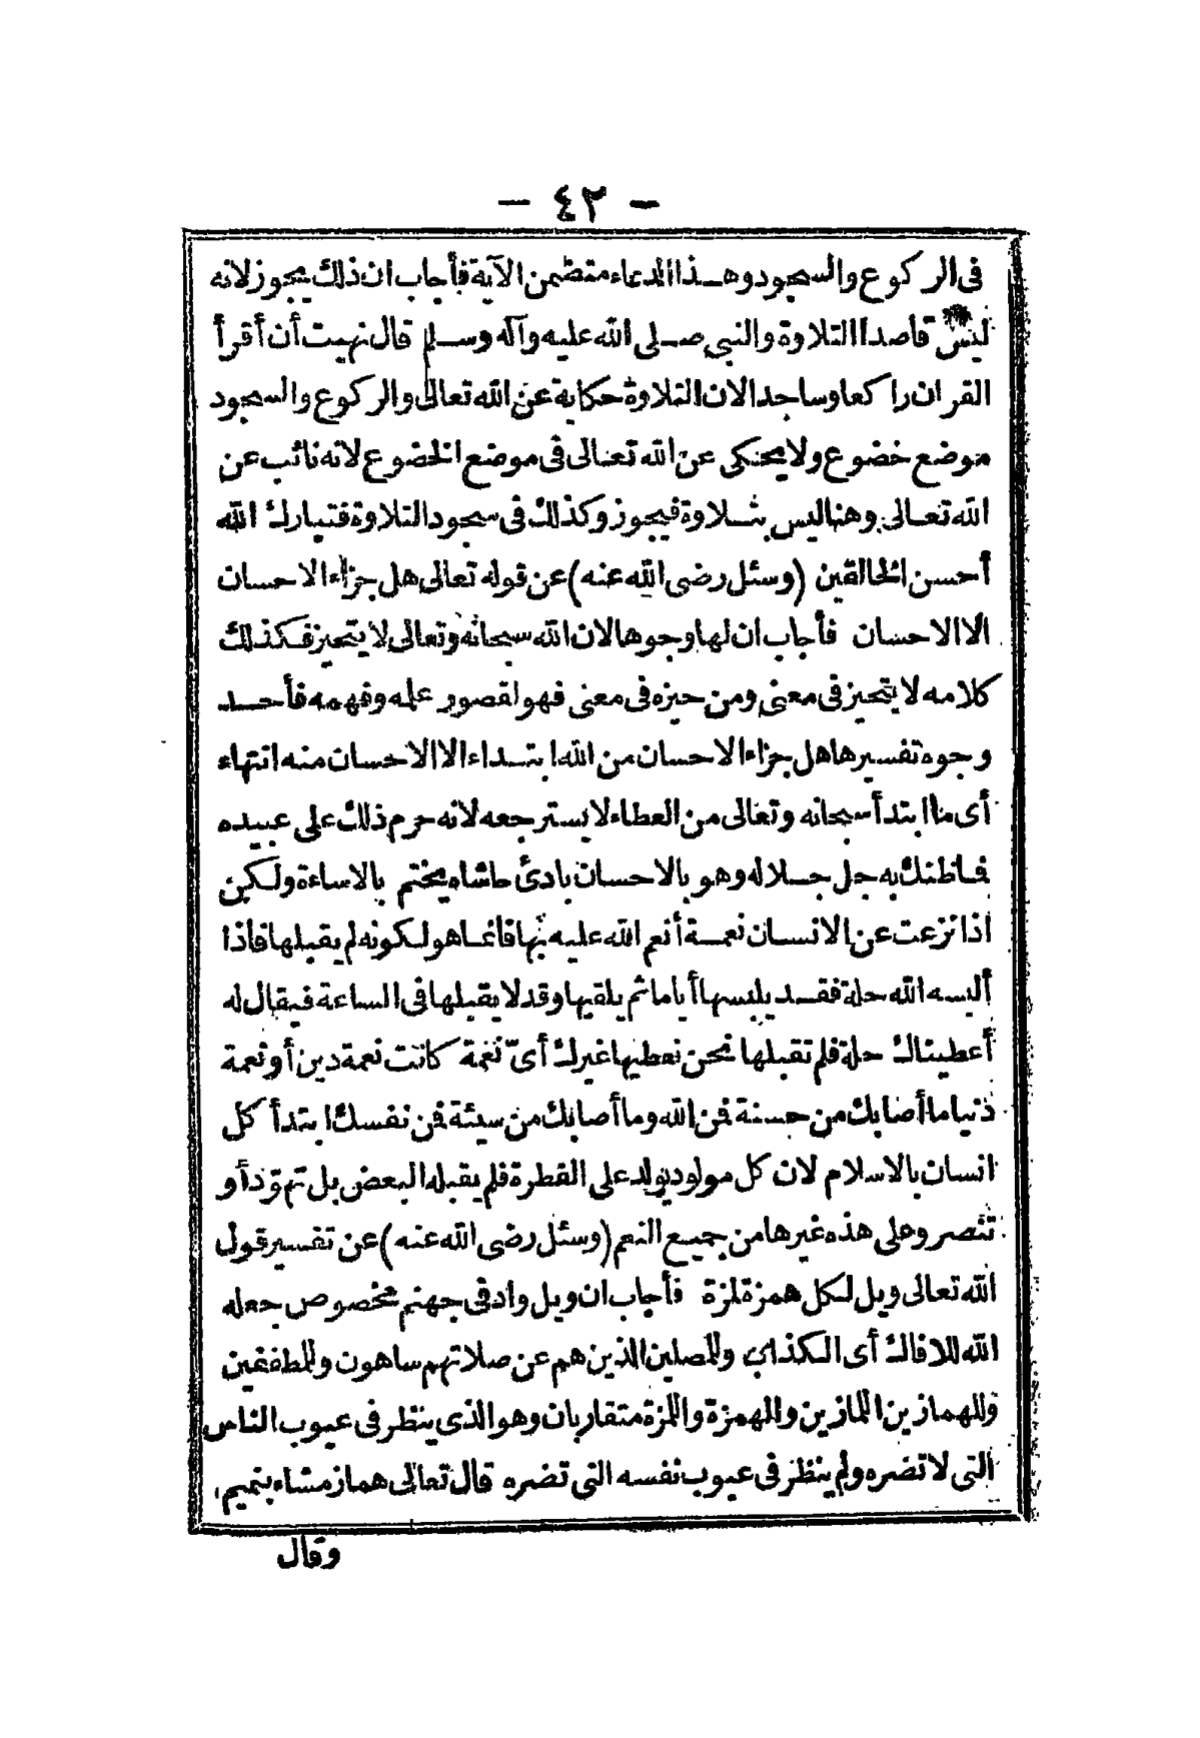 — ٤٢ —
فى الركوع والسجود وهـذا الدعاء متضمن الآية فأجاب ان ذلك يجوز لانه
ليس قاصدا التلاوة والنبى صـلى الله عليه وآله وسـلم قال نهيت أن أقرأ
القران راكعا وساجدا لان التلاوة حكاية عن الله تعالى والركوع والسجود
موضع خضوع ولا يحكى عن الله تعالى فى موضع الخضوع لانه نائب عن
الله تعـالى وهنا ليس بتـلاوة فيجوز وكذلك فى سجود التلاوة فتبارك الله
أحسن الخالقين (وسئل رضى الله عنه) عن قوله تعالى هل جزاء الاحسان
الا الاحسان فأجاب ان لها وجوها لان الله سبحانه وتعالى لا يتحيز فـكذلك
كلامه لا يتحيز فى معنى ومن حيزه فى معنى فهو لقصور علمه وفهمه فأحـد
وجوه تفسيرها هل جزاء الاحسان من الله ابتـداء الا الاحسان منه انتهاء
أى ما ابتدأ سبحانه وتعالى من العطاء لا يسترجعه لانه حرم ذلك على عبيده
فـا ظنك به جل جـلاله وهو بالاحسان بادئ حاشاه يختم بالاساءة ولـكن
اذا نزعت عن الانسـان نعمـة أنعم الله عليه بها فانمـا هو لـكونه لم يقبلها فاذا
ألبسه الله حلة فقـد يلبسها أياما ثم يلقيها وقد لا يقبلها فى الساعة فيقال له
أعطيناك حلة فلم تقبلها نحن نعطيها غيرك أىّ نعمة كانت نعمة دين أو نعمة
دنيا ما أصابك من حسنة فمن الله وما أصابك من سيئة فمن نفسك ابتدأ كل
انسان بالاسلام لان كل مولود يولد على الفطرة فلم يقبله البعض بل تهوّد أو
تنصر وعلى هذه غيرها من جميـع النعم (وسئل رضى الله عنـه) عن تفسير قول
الله تعالى ويل لـكل همزة لمزة فأجاب ان ويل واد فى جهنم مخصوص جعله
الله للافاك أى الـكذاب وللمصلين الذين هم عن صلاتهم ساهون وللمطففين
وللهمازين اللمازين والهمزة واللمزة متقاربان وهو الذى ينظر فى عيوب الناس
التى لا تضره ولم ينظر فى عيوب نفسه التى تضره قال تعالى هماز مشاء بنميم
وقال